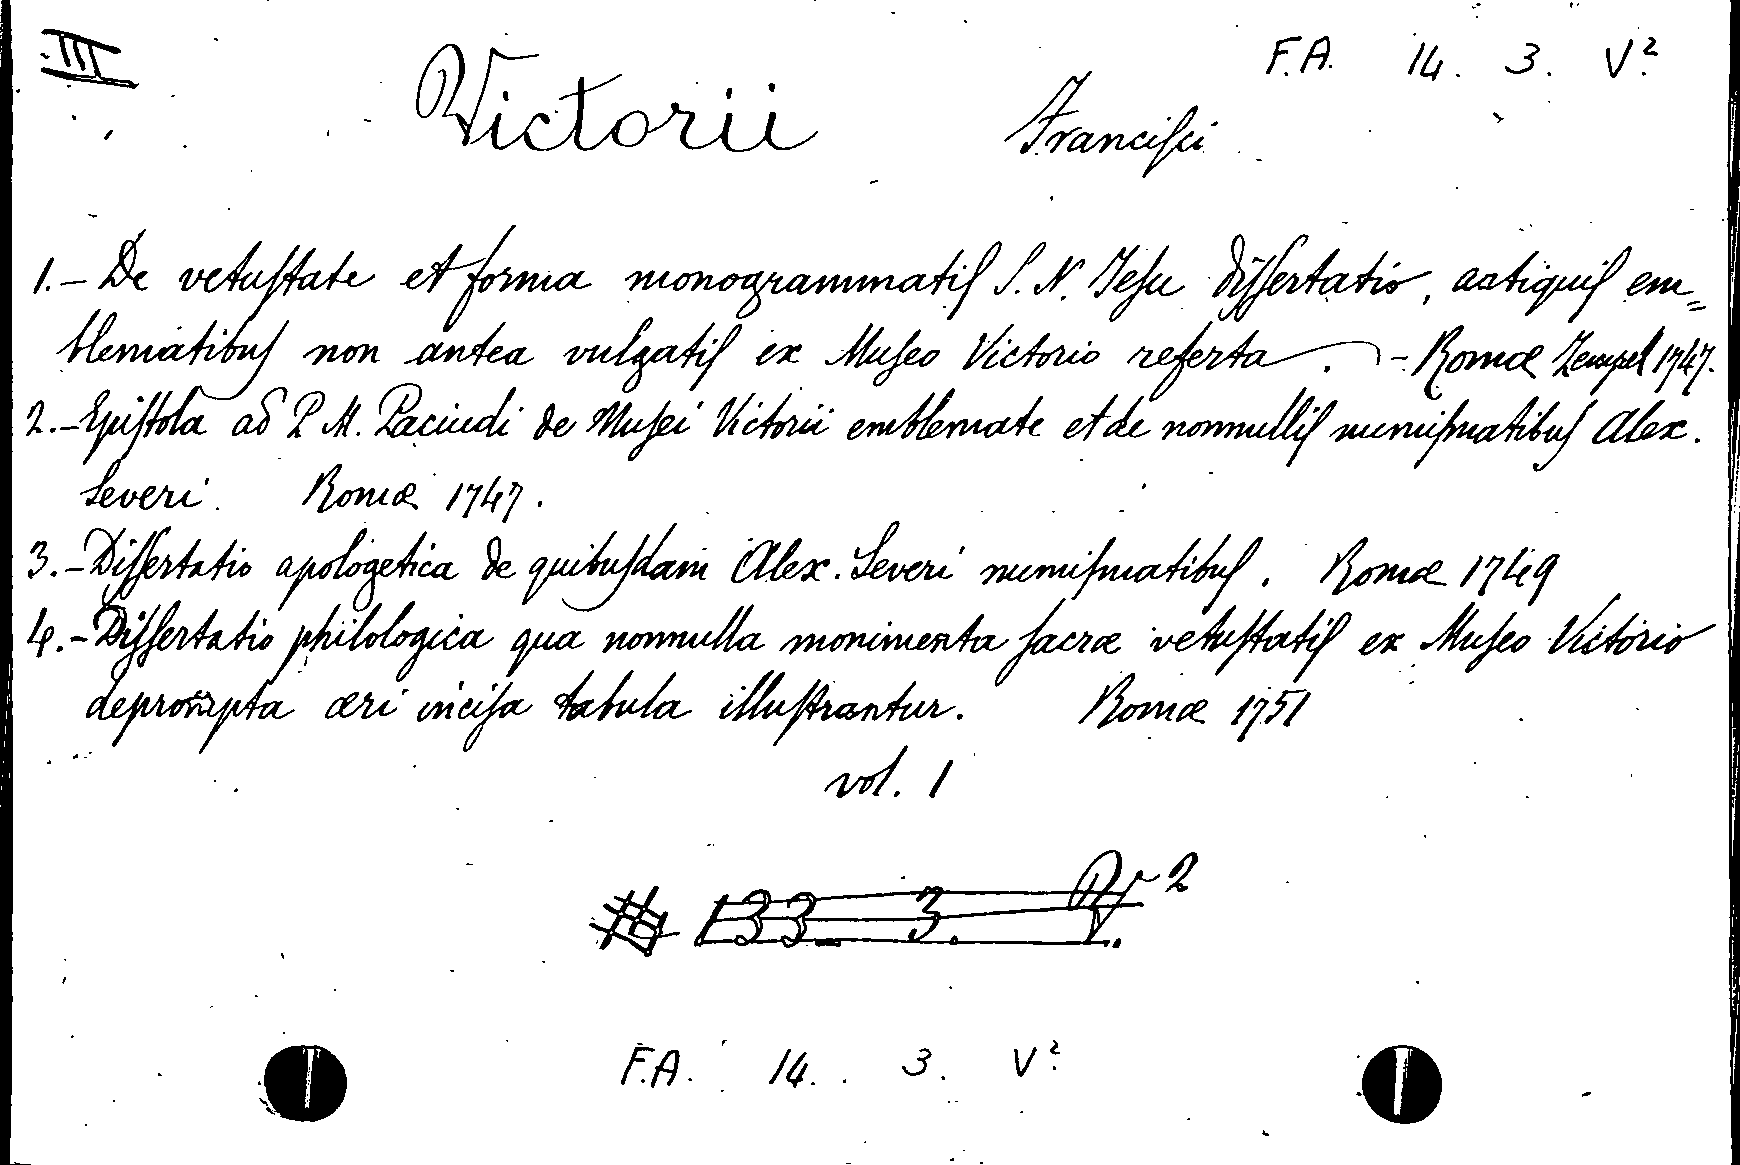 III
F.A. 14. 3. V².
Victorii Francisci
1.- De vetustate et forma monogrammatis S. N. Jesu dissertatio, antiquis em=
blematibus non antea vulgatis ex Museo Victorio referta. - Romæ Zempel 1747.
2.- Epistola ad P. M. Paciudi de Musei Victorii emblemate et de nonnullis numismatibus Alex.
Severi. Romæ 1747.
3.- Dissertatio apologetica de quibusdam Alex. Severi numismatibus. Romæ 1749
4.- Dissertatio philologica qua nonnulla monimenta sacræ vetustatis ex Museo Victorio
deprompta æri incisa tabula illustrantur. Romæ 1751
vol. 1
133_ 3. V. 2
F.A. 14. 3. V².